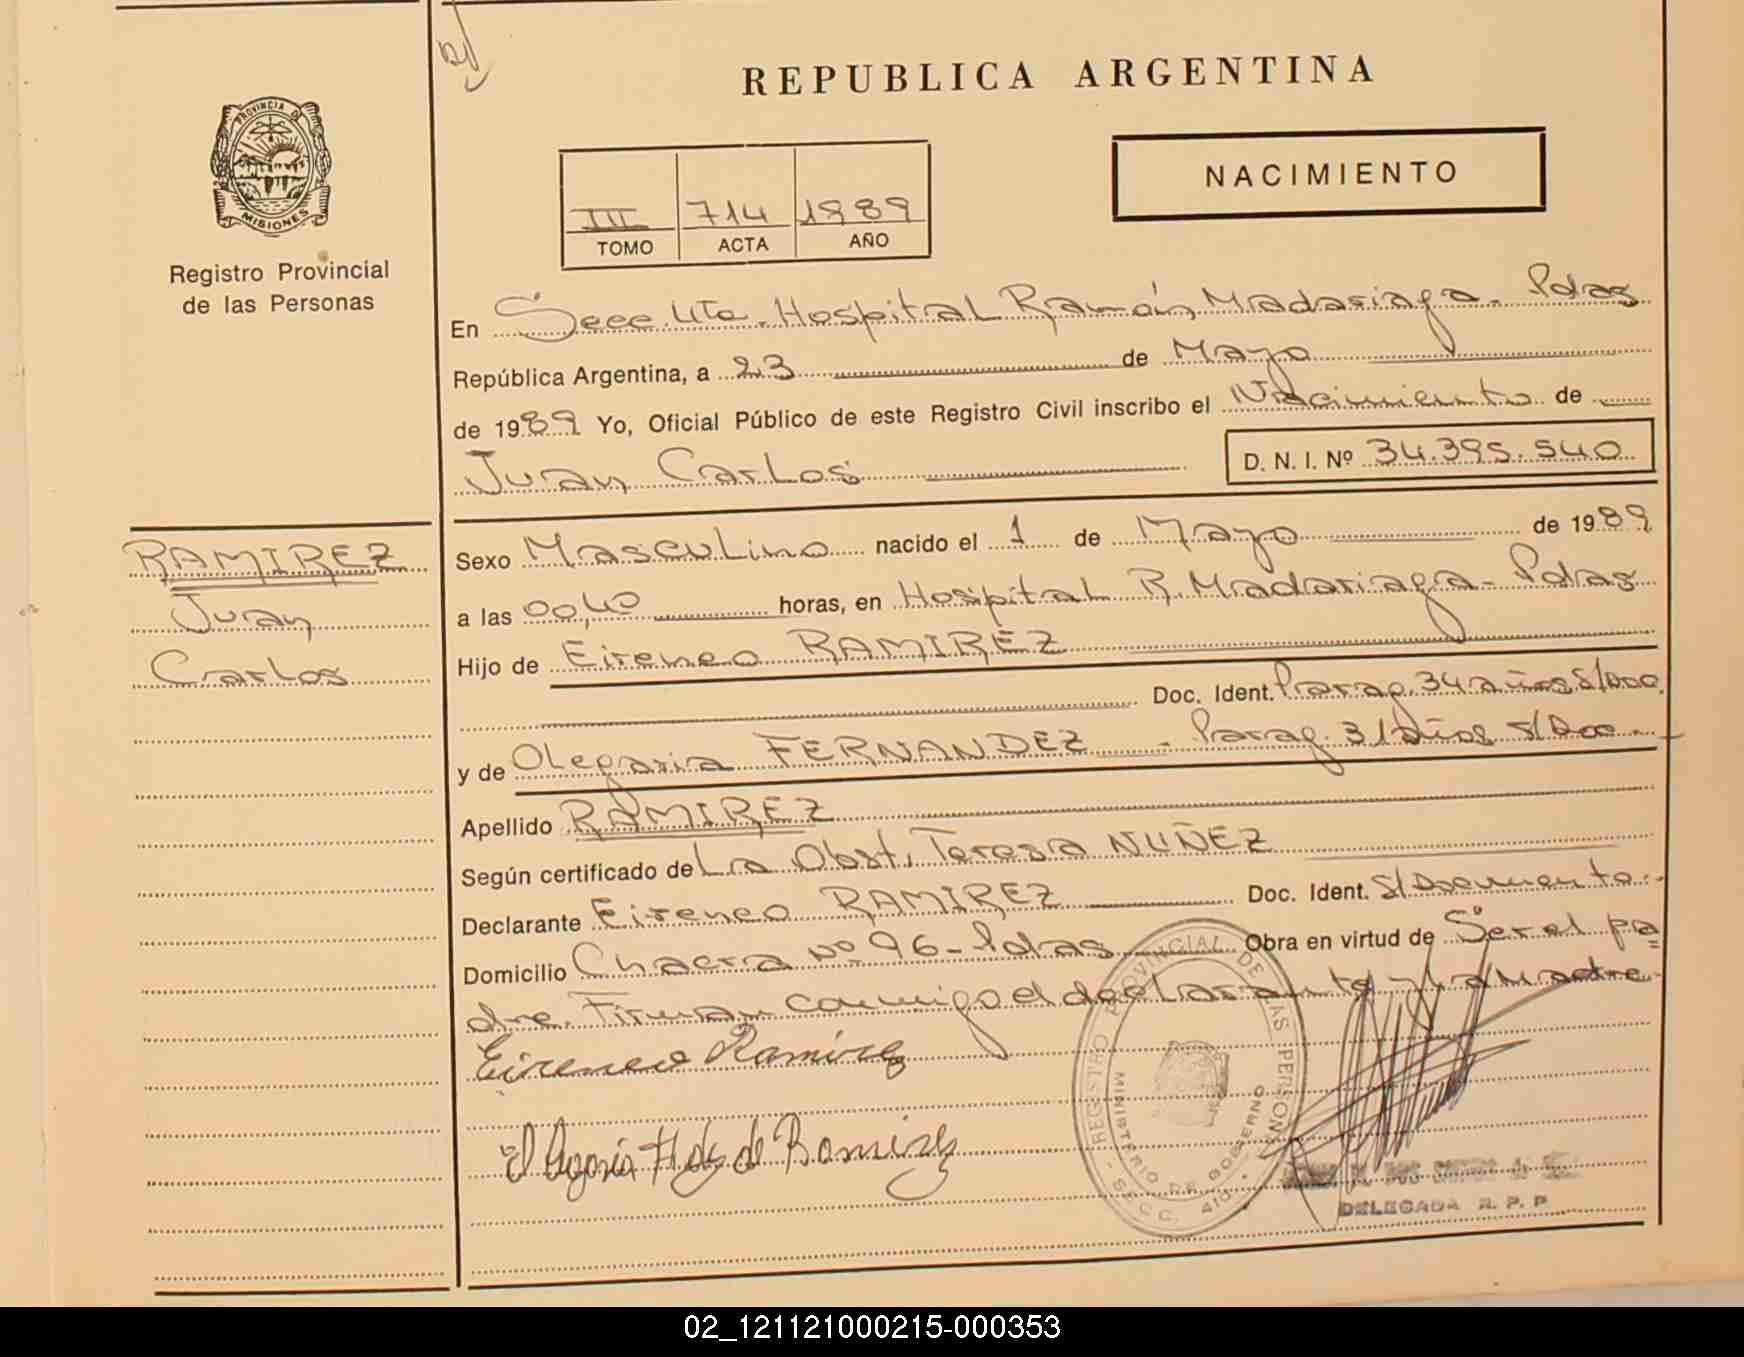 REPUBLICA ARGENTINA
PROVINCIA DE
MISIONES
Registro Provincial
de las Personas
NACIMIENTO
III 714 1989
TOMO ACTA AÑO
En Secc. 4ta. Hospital Ramón Madariaga - Pdas
República Argentina, a 23 de Mayo
de 1989 Yo, Oficial Público de este Registro Civil inscribo el Nacimiento de
Juan Carlos D. N. I. Nº 34.395.540
RAMIREZ
Juan
Carlos
Sexo Masculino nacido el 1 de Mayo de 1989
a las 00,40 horas, en Hospital R. Madariaga - Pdas
Hijo de Eireneo RAMIREZ
Doc. Ident. Parag. 34 años S/Doc.
y de Olegaria FERNANDEZ - Parag. 31 Años S/Doc.-
Apellido RAMIREZ
Según certificado de La Obst. Teresa NUÑEZ
Declarante Eireneo RAMIREZ Doc. Ident. S/Documento.-
Domicilio Chacra Nº 96 - Pdas Obra en virtud de Ser el pa=
dre. Firman conmigo el declarante y la Madre.
Eireneo Ramirez
de Ramirez
REGISTRO PROVINCIAL DE LAS PERSONAS
MINISTERIO DE GOBIERNO
SECC. 4TO.
DELEGADA R. P. P.
02_121121000215-000353